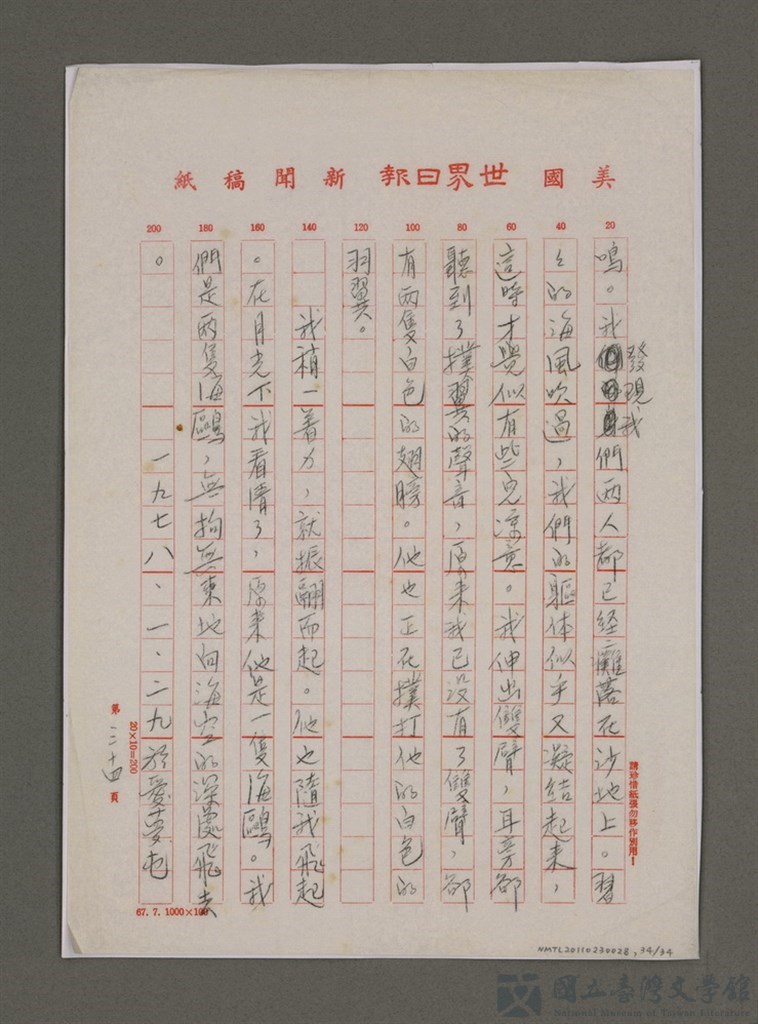 美國世界日報新聞稿紙
20 40 60 80 100 120 140 160 180 200
鳴。我發現我們兩人都已经癱落在沙地上。習
々的海風吹過，我們的軀体似乎又凝結起来，
這時才覺似有些兒凉意。我伸出雙臂，耳旁卻
聽到了撲翼的聲音，原来我已没有了雙臂，卻
有兩隻白色的翅膀。他也正在撲打他的白色的
羽翼。
我稍一著力，就振翮而起。他也隨我飛起
。在月光下我看清了，原来他是一隻海鷗。我
們是兩隻海鷗，無拘無束地向海空的深處飛去
。
一九七八、一、二九於愛夢屯
請珍惜紙張勿移作別用！
20×10=200
第三十四頁
67.7.1000×100
NMTL20110230028, 34/34
國立臺灣文學館
National Museum of Taiwan Literature